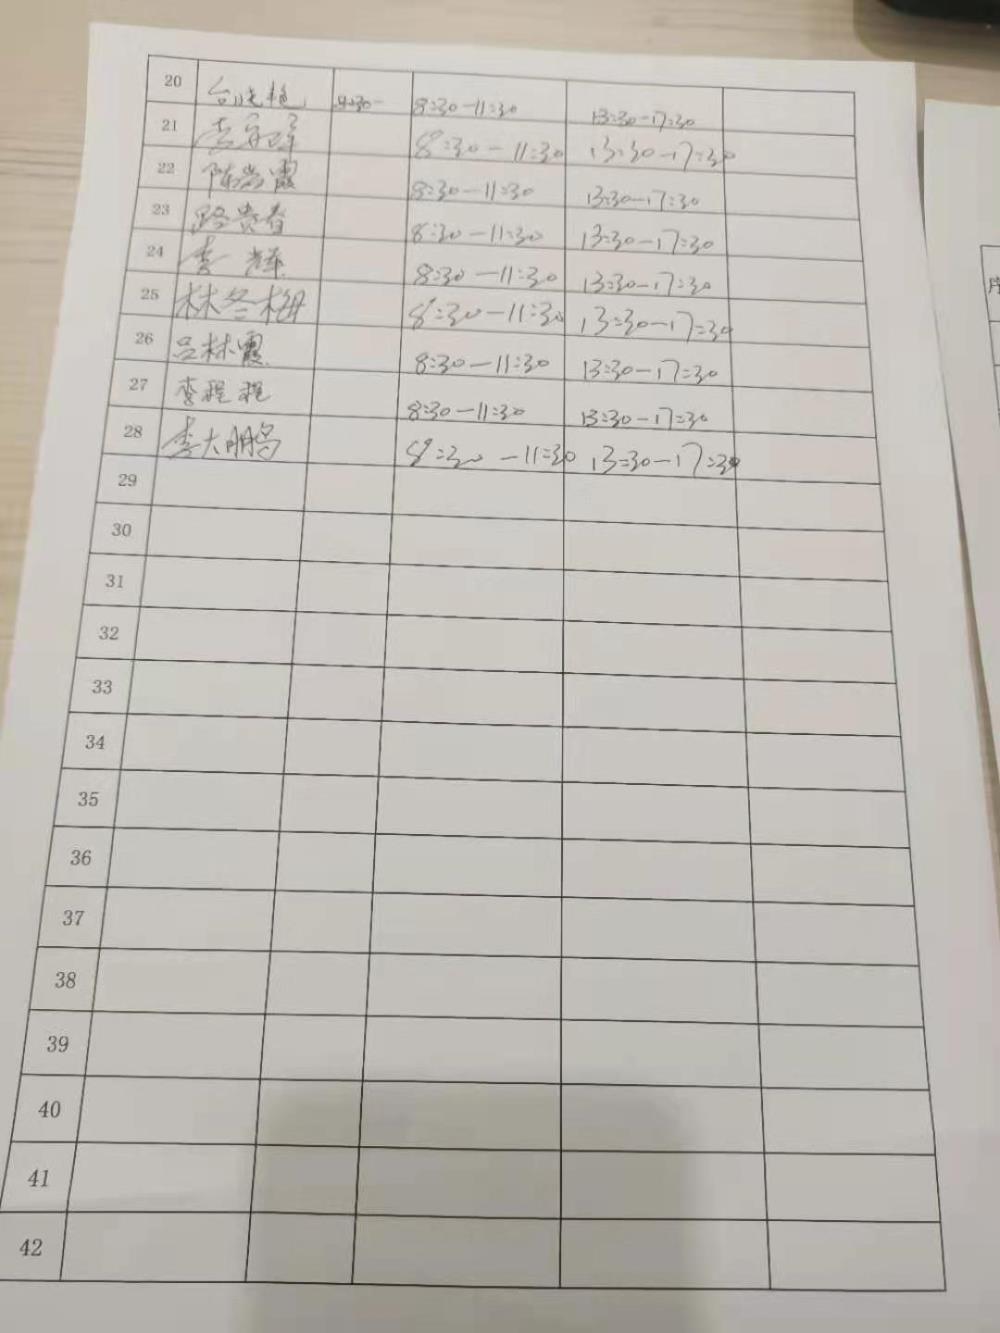 20 8:30- 8:30-11:30 13:30-17:30
21 李 8:30-11:30 13:30-17:30
22 陈岩霞 8:30-11:30 13:30-17:30
23 路贵春 8:30-11:30 13:30-17:30
24 李辉 8:30-11:30 13:30-17:30
25 林冬梅 8:30-11:30 13:30-17:30
26 吕林霞 8:30-11:30 13:30-17:30
27 李程程 8:30-11:30 13:30-17:30
28 李大鹏 8:30-11:30 13:30-17:30
29
30
31
32
33
34
35
36
37
38
39
40
41
42
序